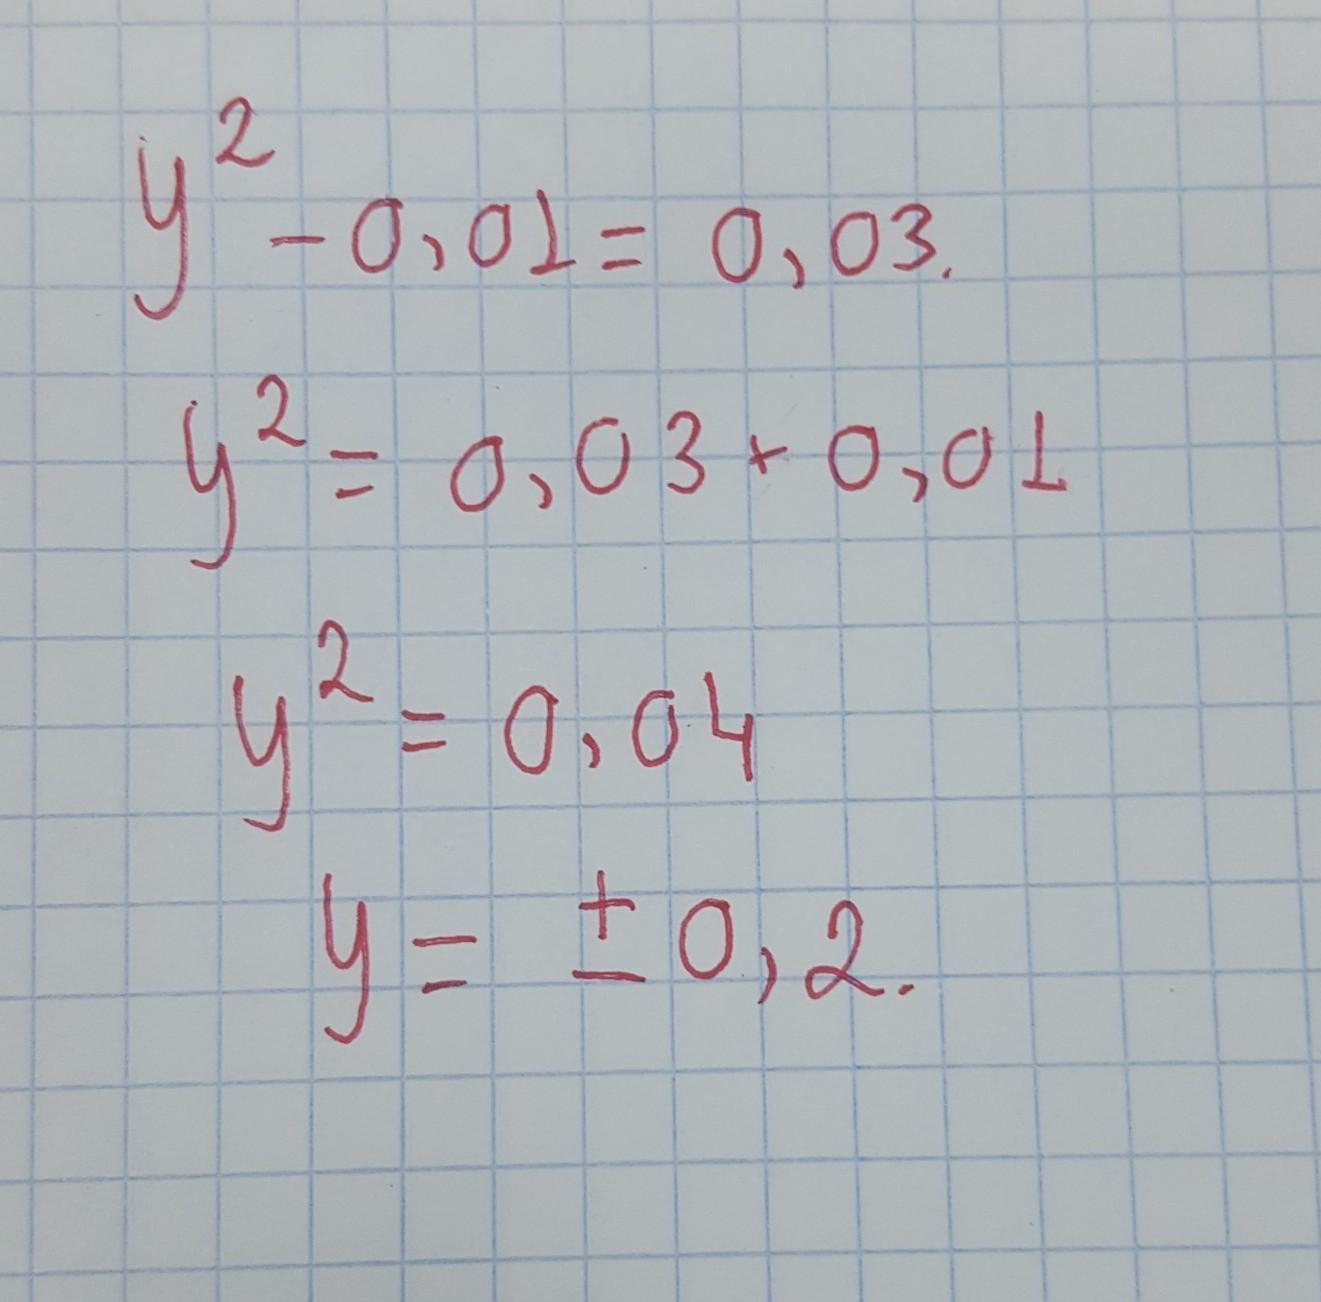 y² - 0,01 = 0,03.
y² = 0,03 + 0,01
y² = 0,04
y = ± 0,2.